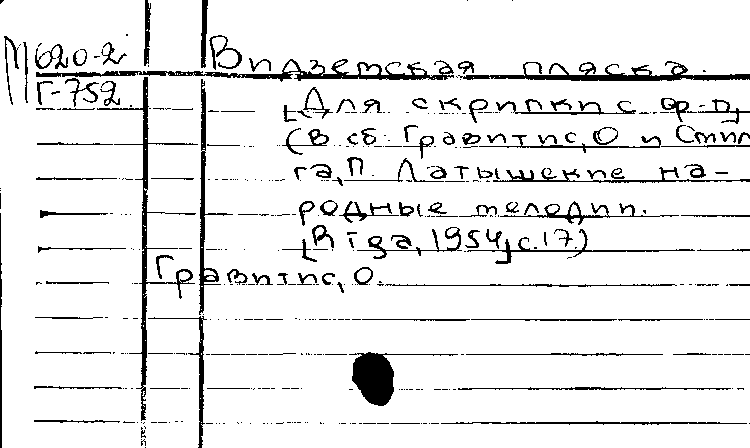 М620-2 Видземская пляска.
Г-752 [Для скрипки с ф-п,
(В сб. Гравитис, О и Стип
га, П. Латышские на-
родные мелодии.
[Rīga, 1954, с.17.)
Гравитис, О.